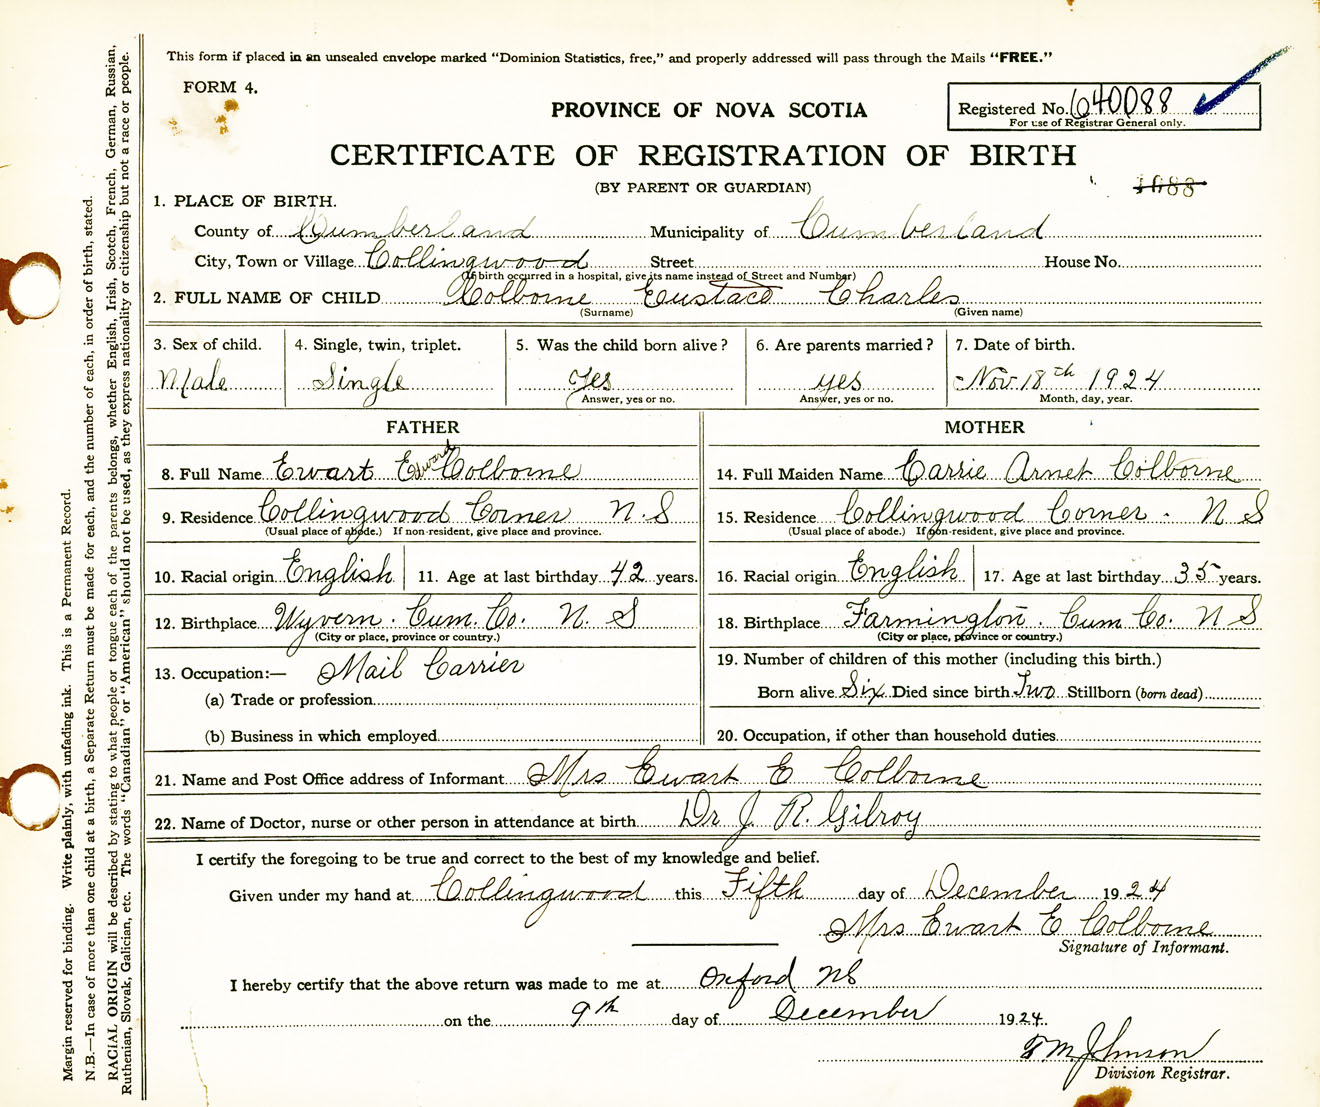 This form if placed in an unsealed envelope marked “Dominion Statistics, free,” and properly addressed will pass through the Mails “FREE.”
FORM 4.
PROVINCE OF NOVA SCOTIA
Registered No. 640088
For use of Registrar General only.
CERTIFICATE OF REGISTRATION OF BIRTH
(BY PARENT OR GUARDIAN)
1088
1. PLACE OF BIRTH.
County of Cumberland Municipality of Cumberland
City, Town or Village Collingwood Street House No.
(If birth occurred in a hospital, give its name instead of Street and Number)
2. FULL NAME OF CHILD Colborne Eustace Charles
(Surname) (Given name)
3. Sex of child. 4. Single, twin, triplet. 5. Was the child born alive? 6. Are parents married? 7. Date of birth.
Male Single Yes yes Nov 18th 1924
Answer, yes or no. Answer, yes or no. Month, day, year.
FATHER MOTHER
8. Full Name Ewart Edward Colborne 14. Full Maiden Name Carrie Arnet Colborne
9. Residence Collingwood Corner N. S 15. Residence Collingwood Corner - N S
(Usual place of abode.) If non-resident, give place and province. (Usual place of abode.) If non-resident, give place and province.
10. Racial origin English 11. Age at last birthday 42 years. 16. Racial origin English 17. Age at last birthday 35 years.
12. Birthplace Wyvern. Cum. Co. N. S 18. Birthplace Farmington. Cum Co. N S
(City or place, province or country.) (City or place, province or country.)
13. Occupation:— Mail Carrier 19. Number of children of this mother (including this birth.)
(a) Trade or profession Born alive Six Died since birth Two Stillborn (born dead)
(b) Business in which employed 20. Occupation, if other than household duties
21. Name and Post Office address of Informant Mrs Ewart E Colborne
22. Name of Doctor, nurse or other person in attendance at birth Dr J. R. Gilroy
I certify the foregoing to be true and correct to the best of my knowledge and belief.
Given under my hand at Collingwood this Fifth day of December 1924
Mrs Ewart E Colborne
Signature of Informant.
I hereby certify that the above return was made to me at Oxford NS
on the 9th day of December 1924.
T M Johnson
Division Registrar.
Margin reserved for binding. Write plainly, with unfading ink. This is a Permanent Record.
N.B.—In case of more than one child at a birth, a Separate Return must be made for each, and the number of each, in order of birth, stated.
RACIAL ORIGIN will be described by stating to what people or tongue each of the parents belongs, whether English, Irish, Scotch, French, German, Russian,
Ruthenian, Slovak, Galician, etc. The words “Canadian” or “American” should not be used, as they express nationality or citizenship but not a race or people.